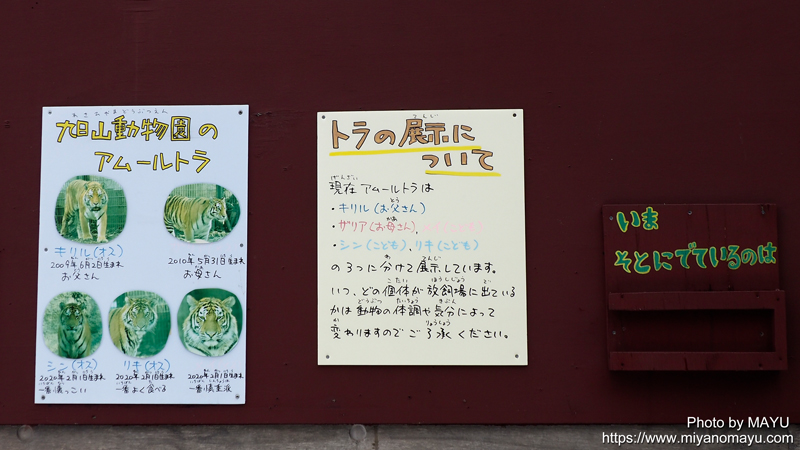 あさひやまどうぶつえん
旭山動物園の
アムールトラ
キリル(オス)
2009年6月2日生まれ
お父さん
2010年5月31日生まれ
お母さん
シン(オス)
2020年2月1日生まれ
リキ(オス)
2020年2月1日生まれ
一番よく食べる
2020年2月1日生まれ
てんじ
トラの展示に
ついて
げんざい
現在 アムールトラは
・キリル(お父さん)
・ザリア(お母さん),
・シン(こども), リキ(こども)
の3つに分けて展示しています。
いつ、どの個体が放飼場に出ている
かは動物の体調や気分によって
変わりますのでご了承ください。
いま
そとにでているのは
Photo by MAYU
https://www.miyanomayu.com/